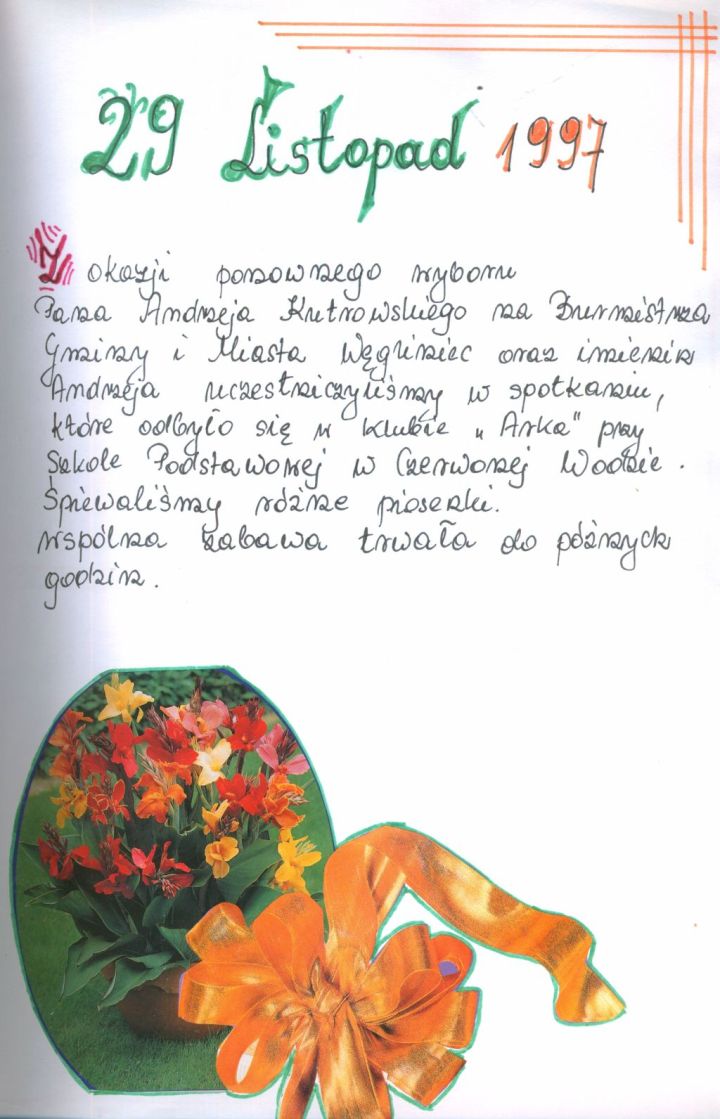 29 Listopad 1997
Z okazji ponownego wyboru
Pana Andrzeja Kutrowskiego na Burmistrza
Gminy i Miasta Węgliniec oraz imienin
Andrzeja uczestniczyliśmy w spotkaniu,
które odbyło się w klubie „Arka" przy
Szkole Podstawowej w Czerwonej Wodzie.
Śpiewaliśmy różne piosenki.
Wspólna zabawa trwała do późnych
godzin.